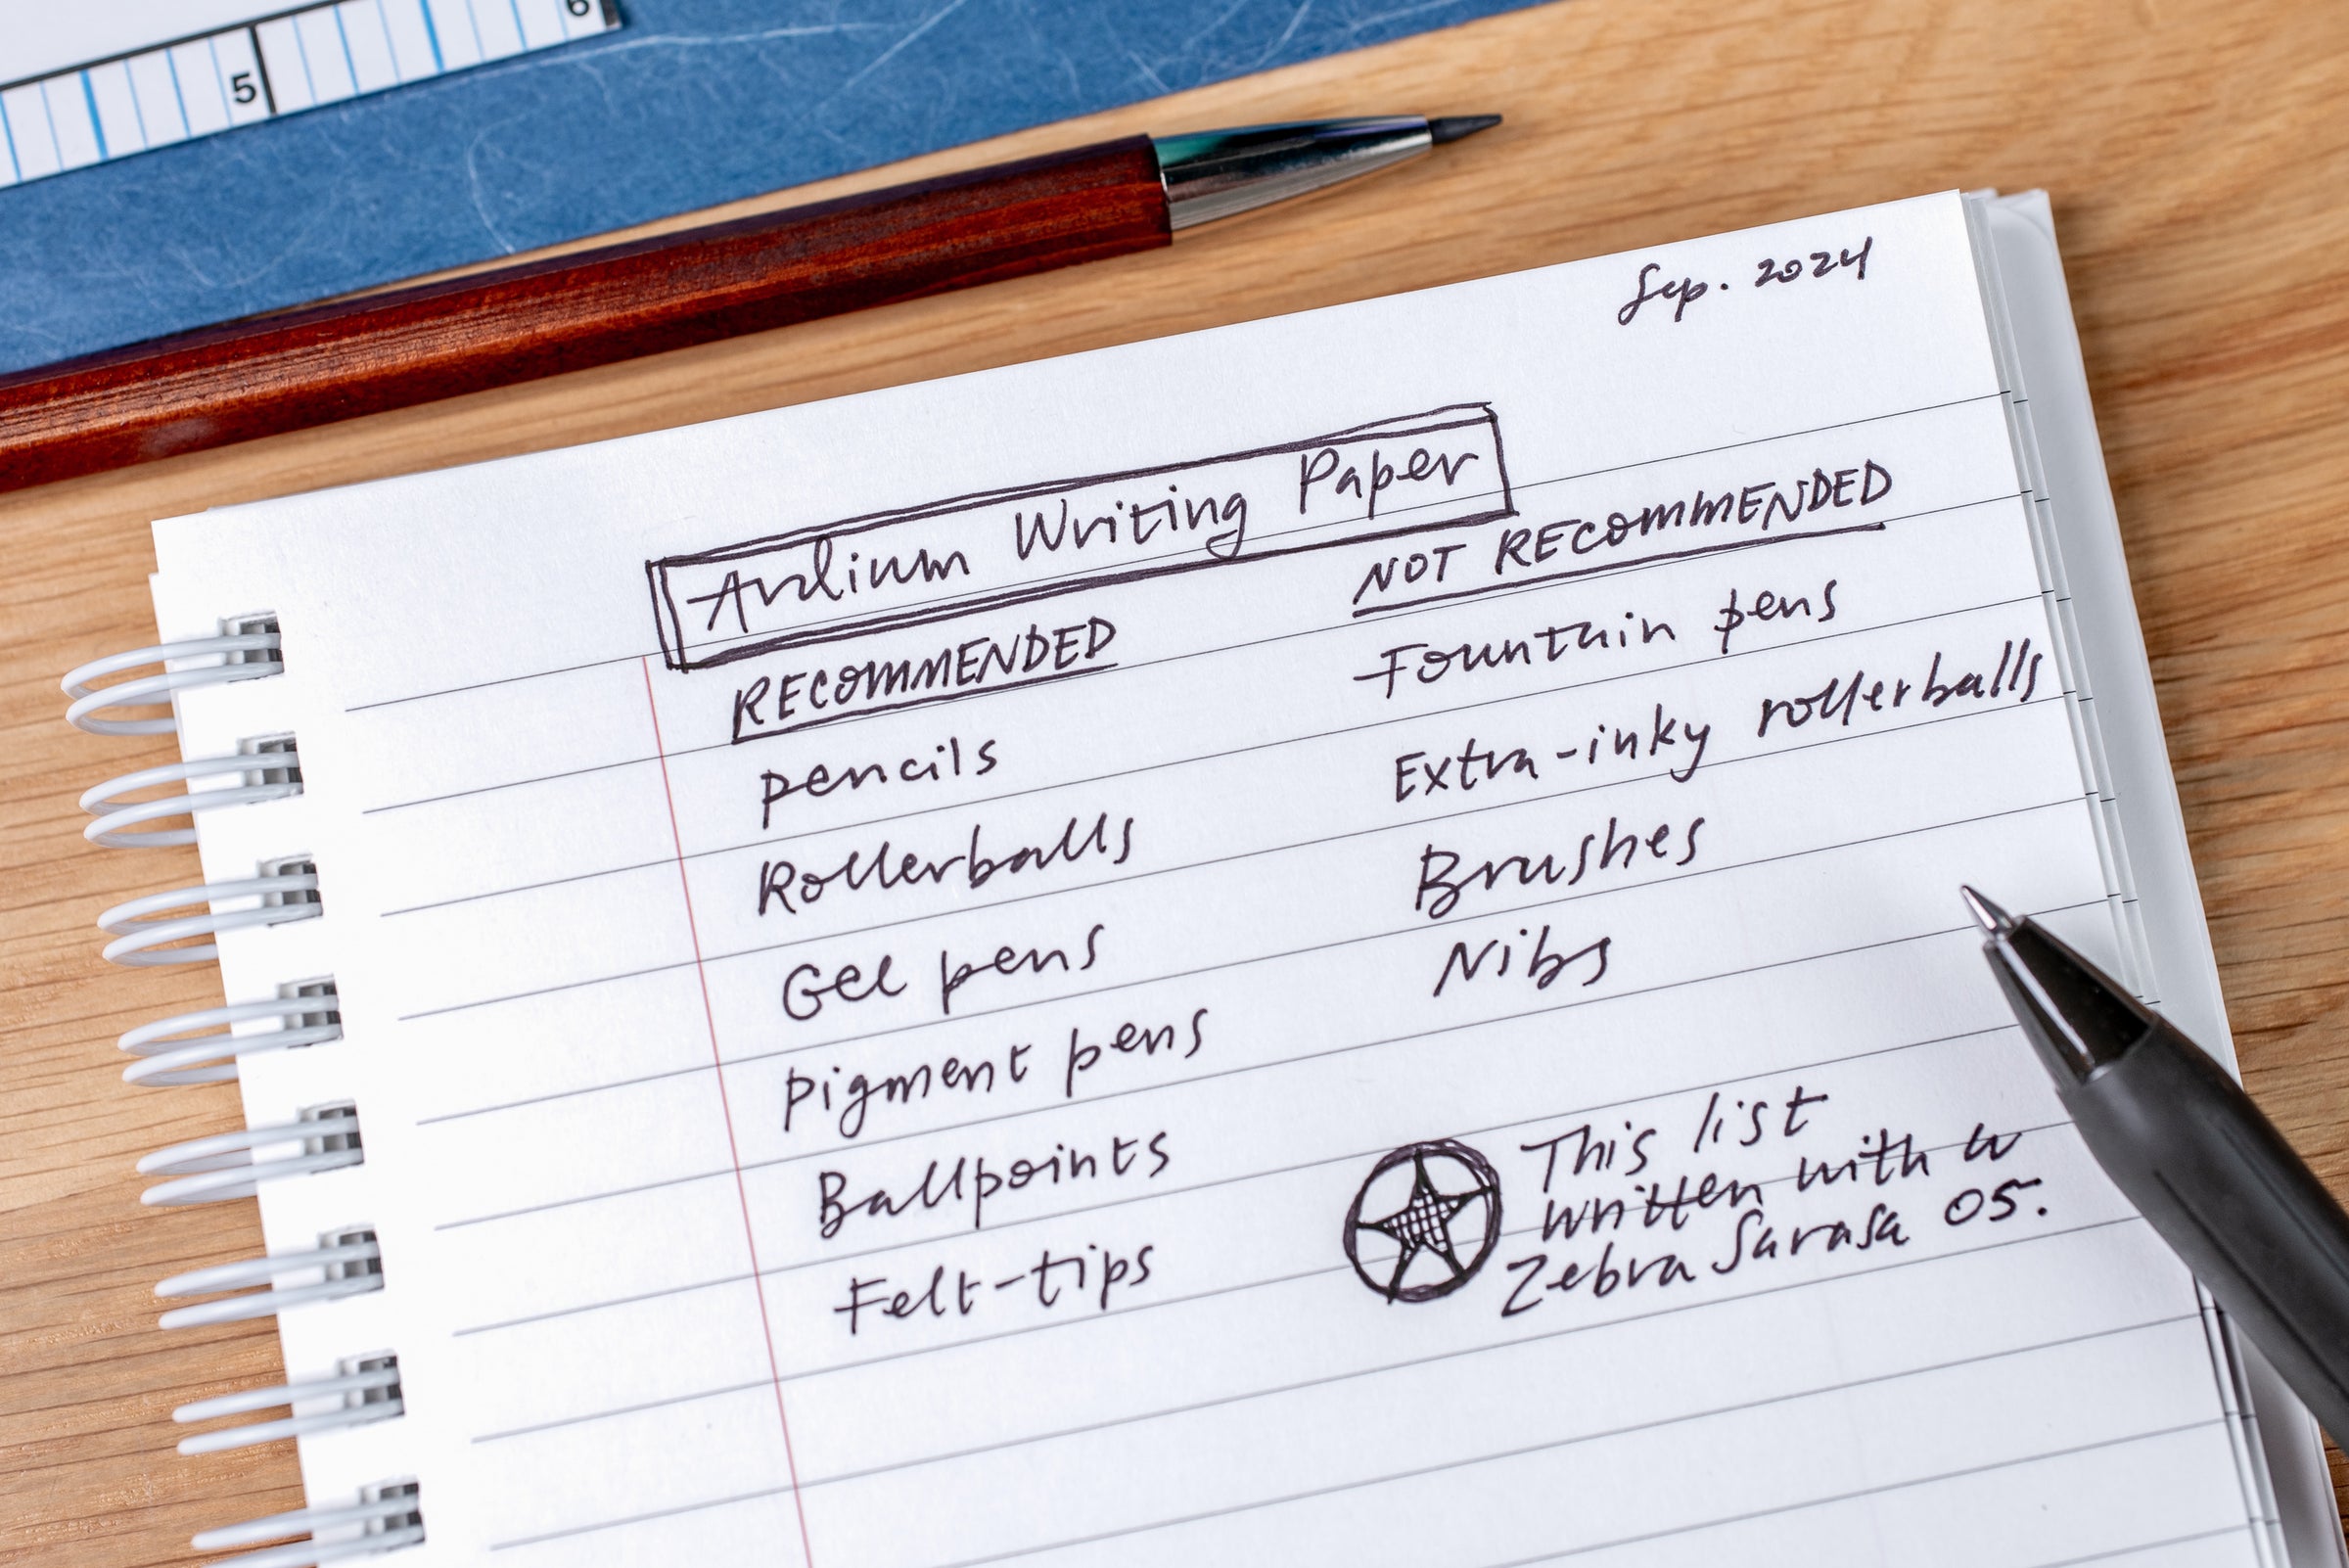 5
6
Sep. 2024
Ardium Writing Paper
RECOMMENDED
pencils
Rollerballs
Gel pens
pigment pens
Ballpoints
Felt-tips
NOT RECOMMENDED
Fountain pens
Extra-inky rollerballs
Brushes
Nibs
This list
written with a
Zebra Sarasa 05.